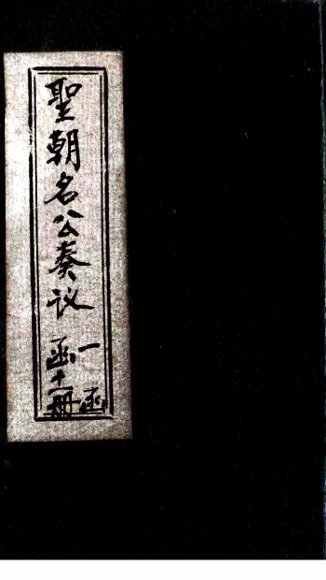 聖朝名公奏议
一函
函十一册